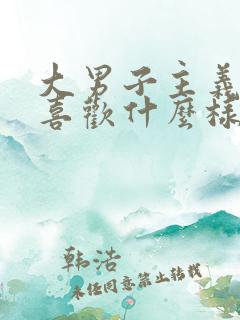 大男子主義
喜歡什麼樣
韩浩
未经同意禁止转载